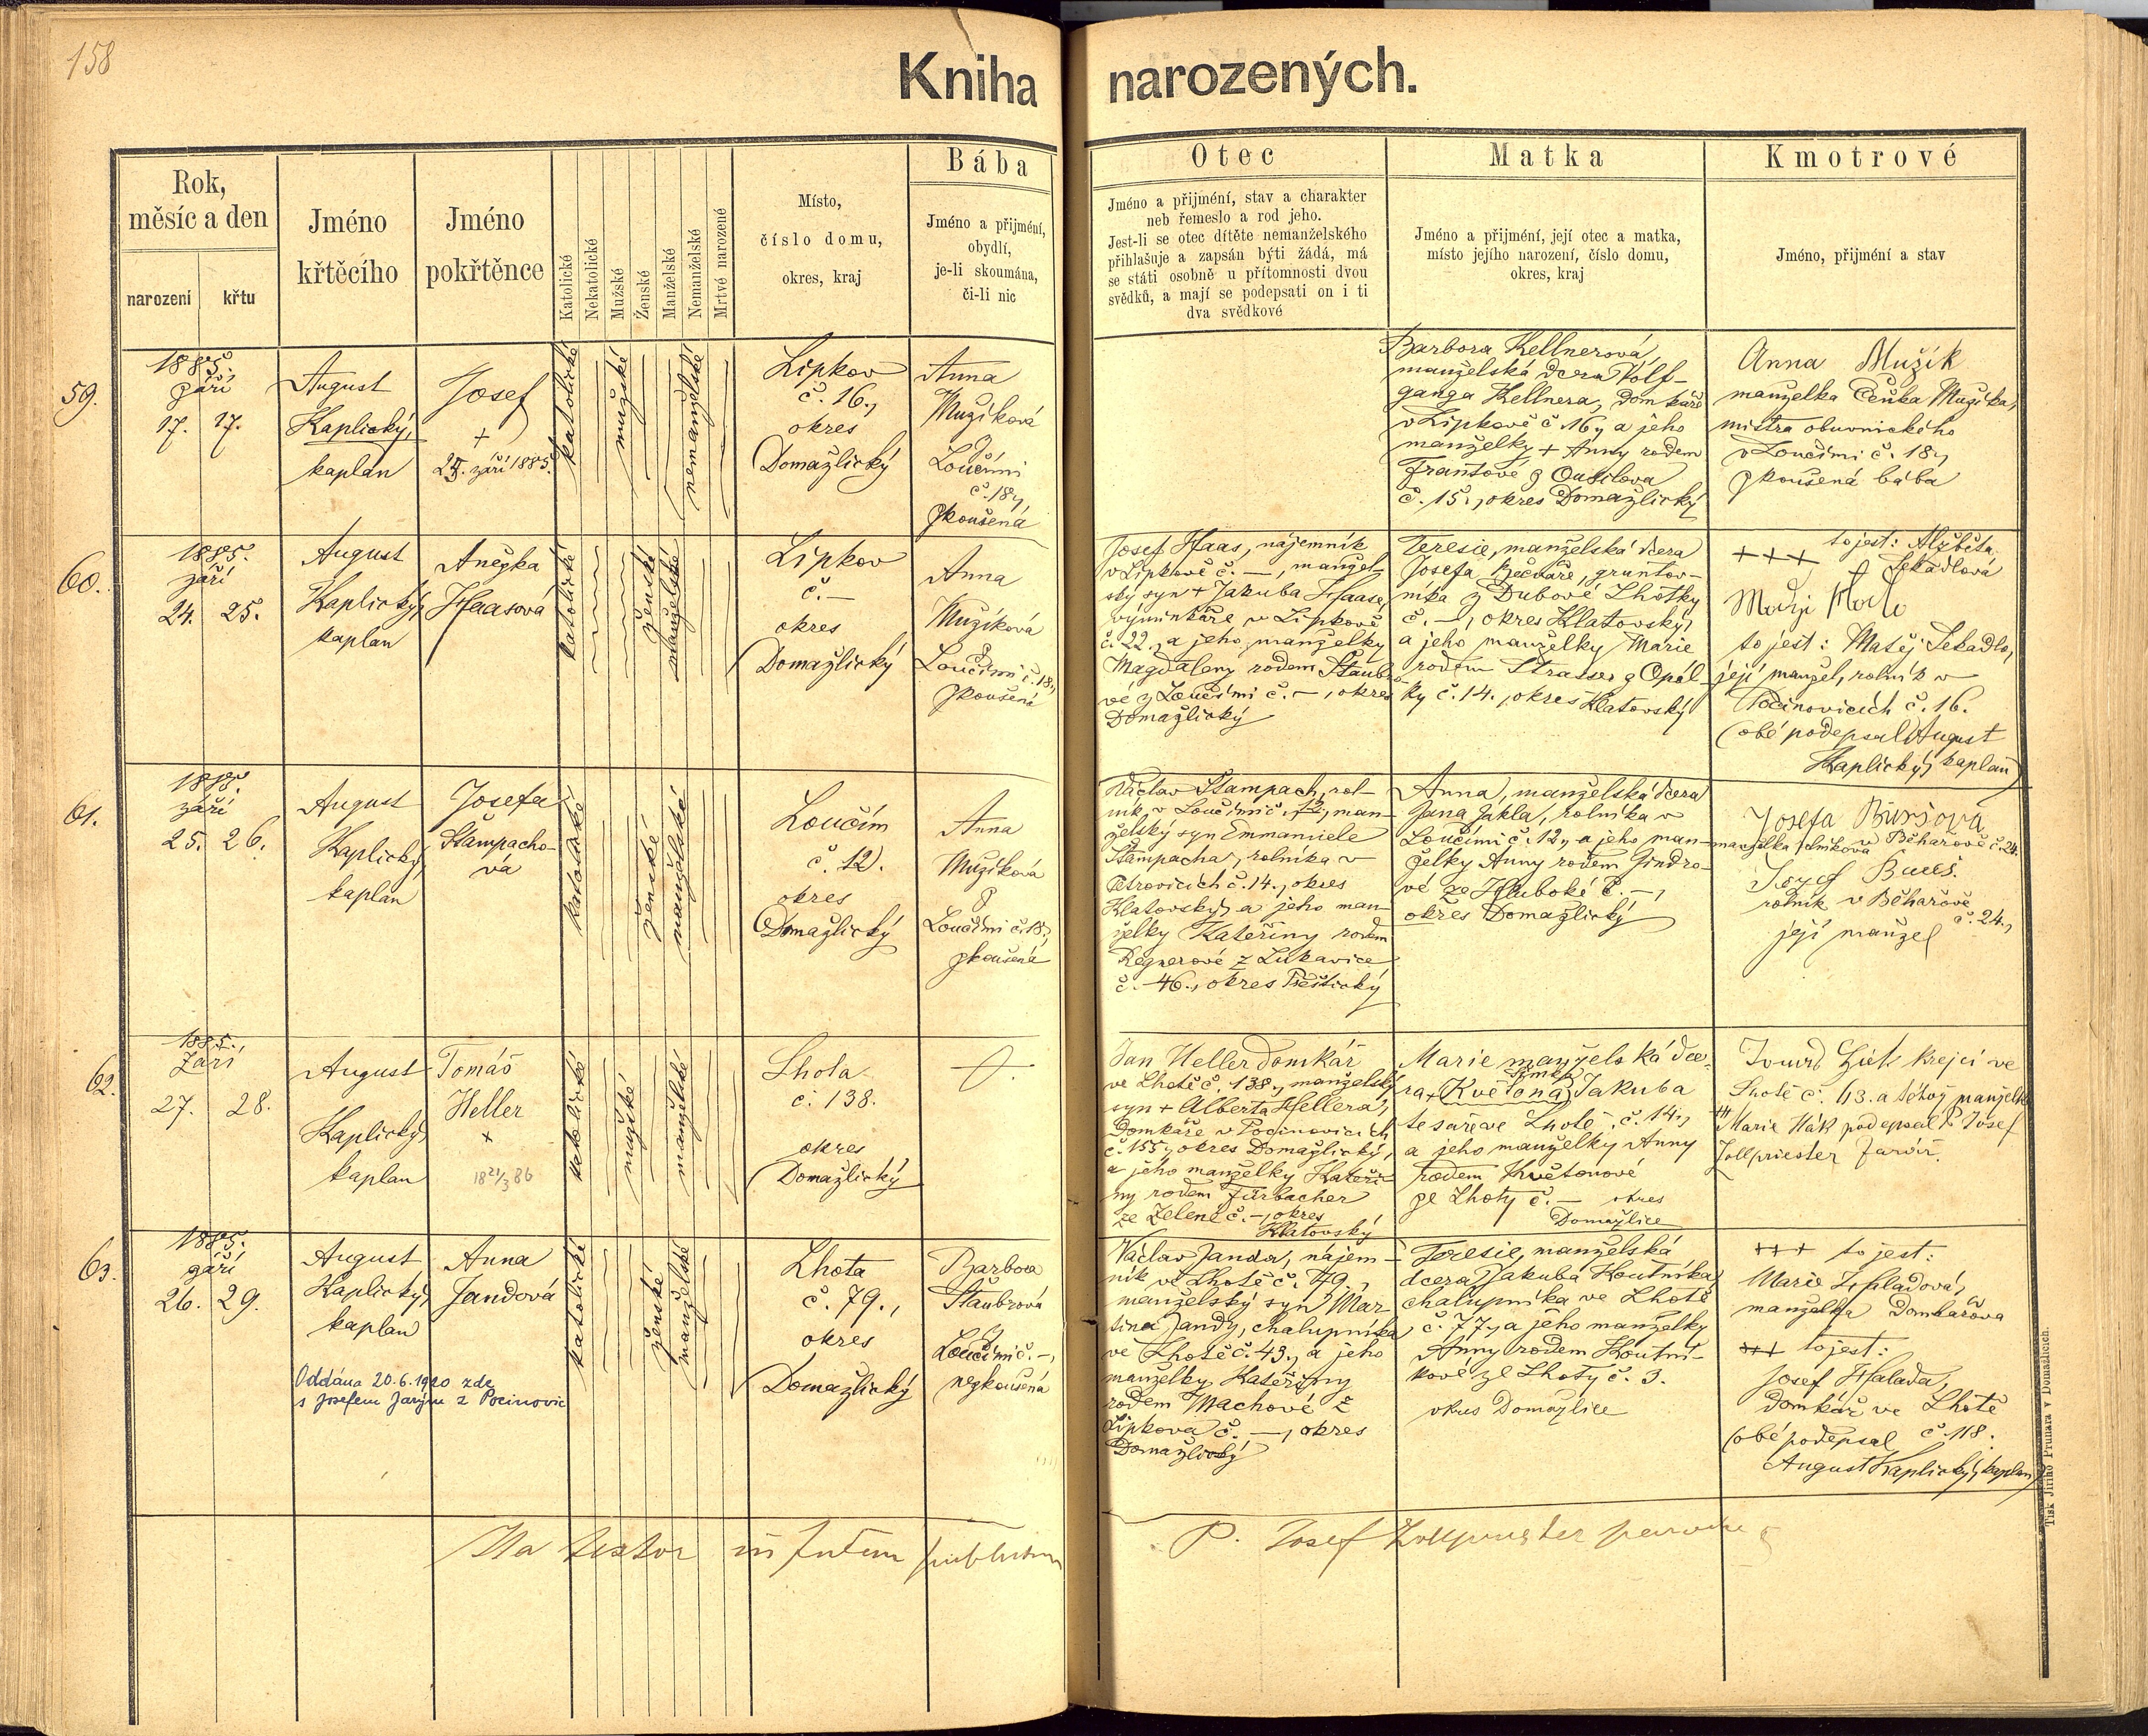 158
Kniha narozených.
Rok,
měsíc a den
narození
křtu
Jméno
křtěcího
Jméno
pokřtěnce
Katolické
Nekatolické
Mužské
Ženské
Manželské
Nemanželské
Mrtvě narozené
Místo,
číslo domu,
okres, kraj
Bába
Jméno a přijmění,
obydlí,
je-li skoumána,
či-li nic
Otec
Jméno a přijmění, stav a charakter
neb řemeslo a rod jeho.
Jest-li se otec dítěte nemanželského
přihlašuje a zapsán býti žádá, má
se státi osobně u přítomnosti dvou
svědků, a mají se podepsati on i ti
dva svědkové
Matka
Jméno a přijmění, její otec a matka,
místo jejího narození, číslo domu,
okres, kraj
Kmotrové
Jméno, přijmění a stav
59.
1885.
září
17. 17.
August
Kaplický,
kaplan
Josef
+
září 1885.
katolické
mužské
nemanželské
Lipkov
č. 16.,
okres
Domažlický
Anna
Mužíková
z
Loučimi
č. 18.,
zkoušená
Barbora Kellnerová,
manželská dcera Volf-
ganga Kellnera, domkáře
v Lipkově č. 16., a jeho
manželky + Anny rodem
Frantové z
č. 15., okres Domažlický
Anna Mužík
manželka Čeňka Mužíka,
mistra obuvnického
v Loučimi č. 18.,
zkoušená bába
60.
1885.
září
24. 25.
August
Kaplický,
kaplan
Anežka
Haasová
katolické
ženské
manželské
Lipkov
č. —
okres
Domažlický
Anna
Mužíková
z
Loučimi č. 18.,
zkoušená
Josef Haas, nájemník
v Lipkově č. —, manžel-
ský syn + Jakuba Haase,
výminkáře v Lipkově
č. 22., a jeho manželky
Magdaleny rodem Štaubro-
vé z Loučimi č. —, okres
Domažlický
Teresie, manželská dcera
Josefa Bečváře, gruntov-
níka z Dubové Lhotky
č. —, okres Klatovský,
a jeho manželky Marie
rodem Strasser z Opál-
ky č. 14., okres Klatovský
+++ to jest: Alžběta
Sekadlová
to jest: Matěj Sekadlo,
její manžel, rolník v
Počinovicích č. 16.
(obě podepsal August
Kaplický, kaplan)
61.
1885.
září
25. 26.
August
Kaplický,
kaplan
Josefa
Štampacho-
vá
katolické
ženské
manželské
Loučim
č. 12.
okres
Domažlický
Anna
Mužíková
z
Loučimi č. 18.,
zkoušená
Václav Štampach, rol-
ník v Loučimi č. 12., man-
želský syn Emmanuele
Štampacha, rolníka v
Petrovicích č. 14., okres
Klatovský, a jeho man-
želky Kateřiny rodem
Regnerové z Lukavice
č. 46., okres Přeštický
Anna, manželská dcera
Jana Jakla, rolníka v
Loučimi č. 12., a jeho man-
želky Anny rodem Jindro-
vé ze Hluboké č. —,
okres Domažlický
Josefa Buršová
manželka rolníkova v Běhařově č. 24.
Josef Bureš
rolník v Běhařově
č. 24.,
její manžel
62.
1885.
Září
27. 28.
August
Kaplický,
kaplan
Tomáš
Heller
×
18 21/3 86
katolické
mužské
manželské
Lhota
č. 138.
okres
Domažlický
Jan Heller domkář
ve Lhotě č. 138., manželský
syn + Alberta Hellera,
domkáře v Počinovicích
č. 155., okres Domažlický,
a jeho manželky Kateři-
ny rodem Fürbacher
ze Zelené č. —, okres
Klatovský
Marie manželská dce-
ra + Květona Jakuba
tesaře ve Lhotě č. 14.,
a jeho manželky Anny
rodem Květonové
ze Lhoty č. — okres
Domažlice
krejčí ve
Lhotě č. 113. a téhož manželka
+++ Marie Hák podepsal P. Josef
Zollpriester farář.
63.
1885.
září
26. 29.
August
Kaplický,
kaplan
Anna
Jandová
Oddána 20.6.1920 zde
s Josefem Jarým z Pocinovic
katolické
ženské
manželské
Lhota
č. 79.,
okres
Domažlický
Barbora
Štaubrová
z
Loučimi č. —,
nezkoušená
Václav Janda, nájem-
ník ve Lhotě č. 79.,
manželský syn Mar-
tina Jandy, chalupníka
ve Lhotě č. 43., a jeho
manželky Kateřiny
rodem Machové z
Lipkova č. —, okres
Domažlický
Teresie, manželská
dcera Jakuba Koutníka,
chalupníka ve Lhotě
č. 77., a jeho manželky
Anny rodem Koutní-
kové ze Lhoty č. 3.
okres Domažlice
+++ to jest:
Marie Hfaladová,
manželka domkářova
+++ to jest:
Josef Hfalada,
domkář ve Lhotě
č. 118.
(obě podepsal
August Kaplický, kaplan)
Ita testor in fidem publicam
P. Josef Zollpriester parochus
Tisk Jiřího Prunara v Domažlicích.